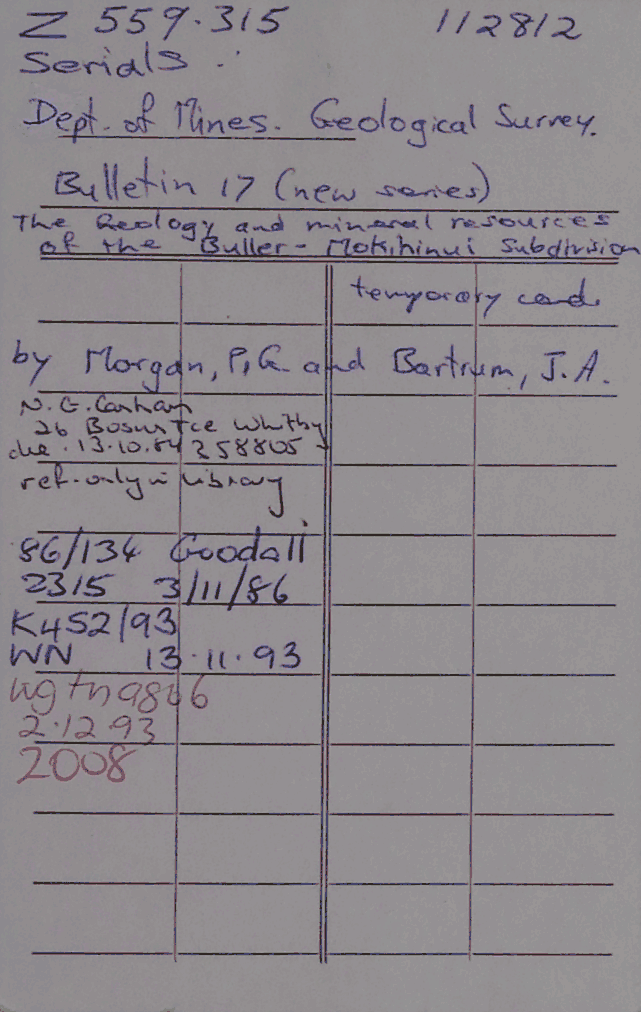 Z 559.315 112812
Serials
Dept. of Mines. Geological Survey.
Bulletin 17 (new series)
The Geology and mineral resources
of the Buller - Mokihinui Subdivision
temporary card
by Morgan, P.G. and Bartrum, J.A.
N. G.
26 Tce Whitby
due 13.10.84 258805
ref. only in library
86/134 Goodall
2315 3/11/86
K452/93
WN 13.11.93
wgtn 9866
2.12.93
2008